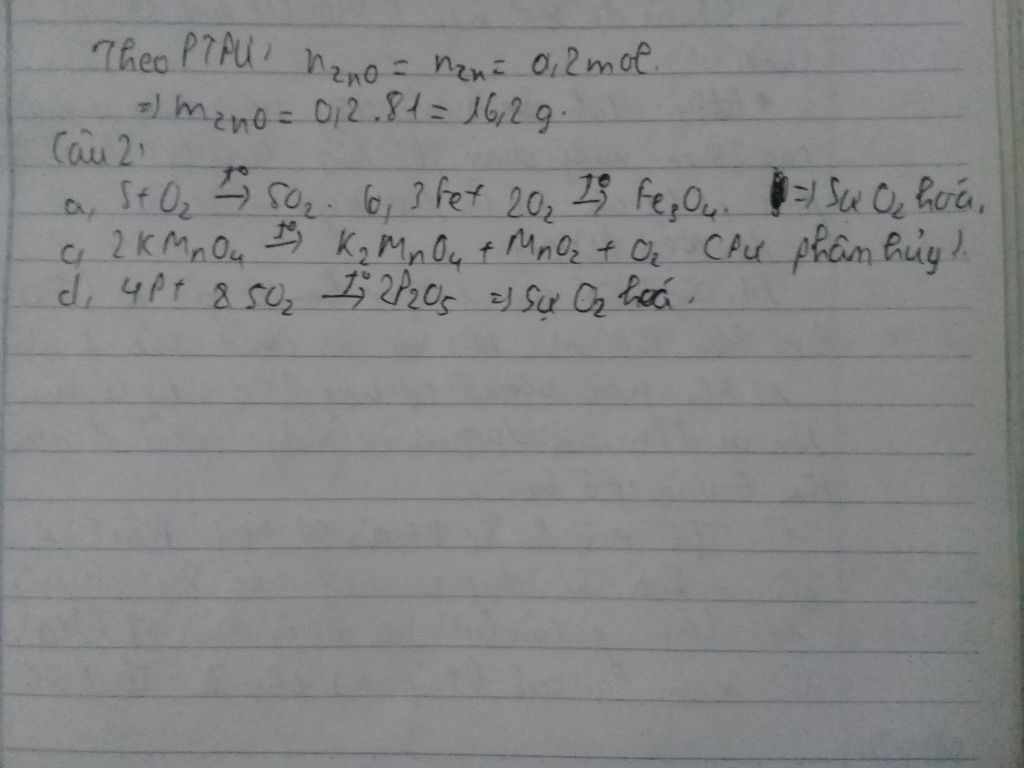 Theo PTPU: nZnO = nZn = 0,2 mol.
=> mZnO = 0,2.81 = 16,2 g.
Câu 2:
a, S + O2 t°→ SO2. b, 3Fe + 2O2 t°→ Fe3O4. => Sự O2 hoá.
c, 2KMnO4 t°→ K2MnO4 + MnO2 + O2 (PƯ phân hủy).
d, 4P + 5O2 t°→ 2P2O5 => Sự O2 hoá.